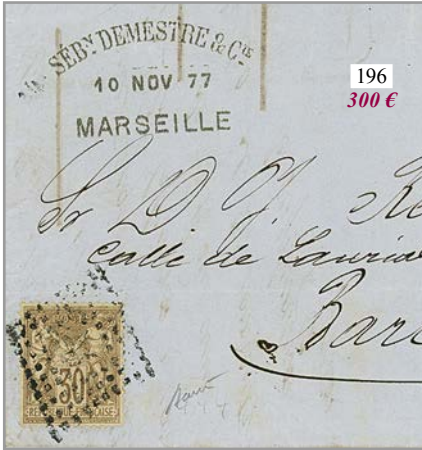 SÉBⁿ DEMESTRE & Cⁱᵉ
10 NOV 77
MARSEILLE
196
300 €
Sr D. J.
Calle de Lauria
Barc
30
REPUBLIQUE FRANCAISE